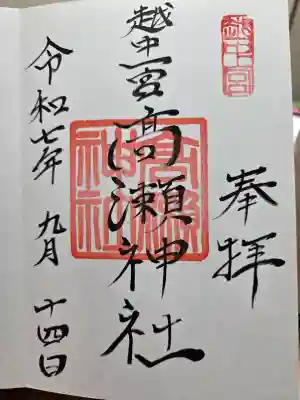 越中一宮
奉拝
越中一宮高瀬神社
高瀬神社
令和七年 九月 十四日